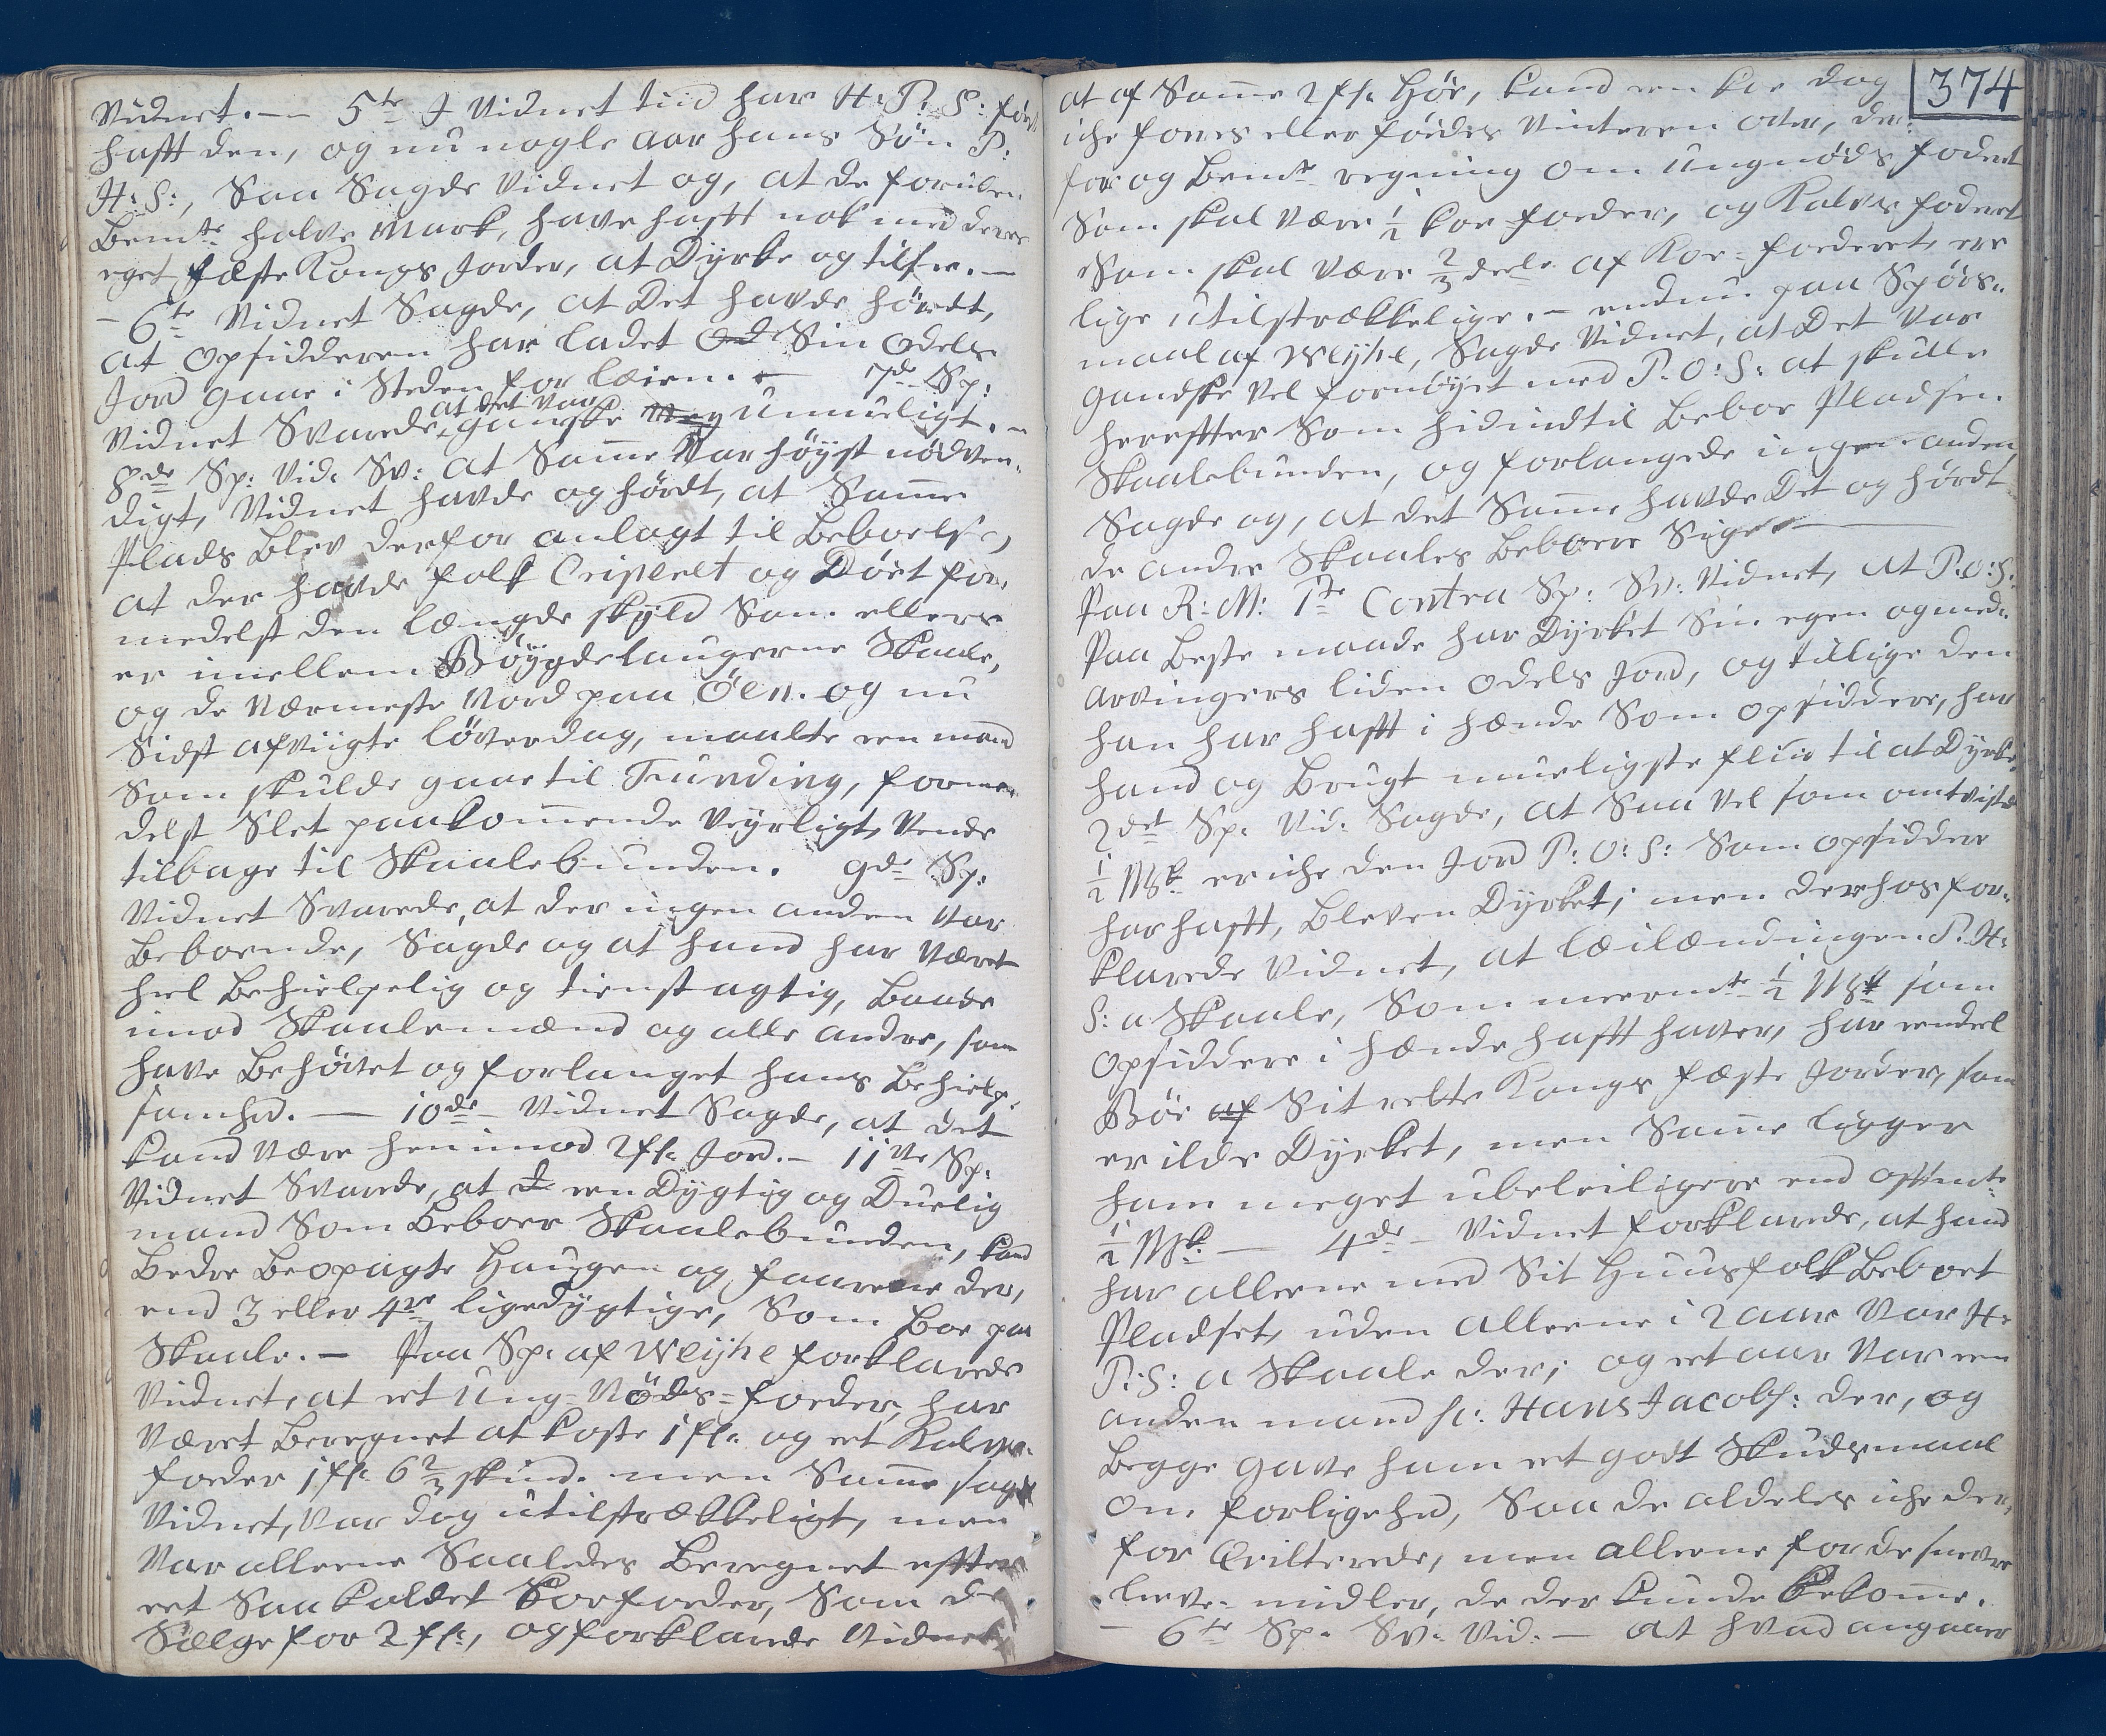 Vidnet. — 5te I Vidnet tiid har H: P: S: først
hafft den, og nu nogle aar hans Søn P:
H: S:, Saa Sagde Vidnet og, at de foruden
Bemte halve Mark, have hafft nok med deres
eget Fæste Kongs Jorder, at Dyrke og tilsee. —
— 6te Vidnet Sagde, at Det havde hørdt,
at opsidderen har ladet Od Sin Odels
Jord gaae i Steden for læien. — 7de Sp:
Vidnet Svarede, at det var ganske Meg umueligt. —
8de Sp: Vid: Sv: at Samme Var høyst nødven-
digt, Vidnet havde og hørdt, at Samme
Plads Blev derfor anlagt til Beboelse,
at der havde folk Criperet og Døet for-
medelst den længde skyld Som ellers
er imellem Bøygdelaugerne Skaale,
og de Nærmeste Nord paa Øen. og nu
Sidst afvigte løverdag, maatte een mand
Som skulde gaae til Funding, forme-
delst Slet paakommende Veyrligt, Vende
tilbage til Skaalebunden. 9de Sp:
Vidnet Svarede, at der ingen anden Var
Beboende, Sagde og at hand har Været
heel Behielpelig og tienstagtig, Baade
imod Skaalemænd og alle andre, som
have Behøvet og forlanget hans Behielp-
somhed. — 10de Vidnet Sagde, at det
kand Være hen imod 2 fl: Jord. — 11te Sp:
Vidnet Svarede, at d een Dygtig og Duelig
mand Som Beboer Skaalebunden, kand
Bedre Beopagte Haugen og faarene der,
end 3 eller 4re ligedygtige, Som Boe paa
Skaale. — Paa Sp: af Weyhe forklarede
Vidnet, at eet Ung-Nøds-foeder, har
Været Beregnet at koste 1 fl: og eet Kalve-
foeder 1 fl: 6 2/3 skind. men Samme sagde
Vidnet, Var dog utilstrækkeligt, men
Var alleene Saaledes Beregnet efter
eet Saa kaldet Koefoeder, Som de
Sælge for 2 fl:, og forklarede Vidnet
374
at af Samme 2 fl: Høe, kand een koe dog
iche fores eller fødes Vinteren over, der-
for og Bemte regning om Ungnøds foderet
Som skal Være 1/2 koe foeder, og Kalve foderet
Som skal Være 2/3 deele af Koe-foederet, ere
lige utilstrækkelige. — endnu paa Spørs-
maal af Weyhe, Sagde Vidnet, at Det Var
gandske Vel fornøyet med P: O: S: at skulle
hereffter Som hidindtil Beboe Pladsen
Skaalebunden, og forlangede ingen anden,
Sagde og, at det Samme havde Det og hørdt
de andre Skaales Beboere Sige. —
Paa R: M: 1te Contra Sp: Sv: Vidnet, at P: O: S:
Paa Beste maade har Dyrket Sin egen og med-
arvingers liden Odels Jord, og tillige den
han har hafft i hænde Som opsiddere, har
hand og Brugt mueligste fliid til at Dyrke,
2det Sp: Vid: Sagde, at Saa Vel som omtvistede
1/2 Mk: er iche den Jord P: O: S: Som opsidder
har hafft, Bleven Dyrket; men derhos for-
klarede Vidnet, at læilændingen P. H:
S: a Skaale, Som meermte 1/2 Mk som
opsiddere i hænde hafft haver, har eendeel
Bøe af Sit rette Kongs fæste Jorder, som
er ilde Dyrket, men Samme ligger
ham meget ubeleiligere end offtmte
1/2 Mk: — 4de — Vidnet forklarede, at hand
har alleene med Sit Huusfolk Beboet
Pladset, uden alleene i 2 aar Var H:
P: S: a Skaale der; og eet aar Var een
anden mand sc: Hans Jacobs: der, og
Begge gave ham eet godt Skudsmaal
om forligehed, Saa de aldeles iche der-
for Qvitterede, men alleene for de snevre
leve-midler, de der kunde Bekomme.
— 6te Sp: Sv: Vid: — at hvad angaaer